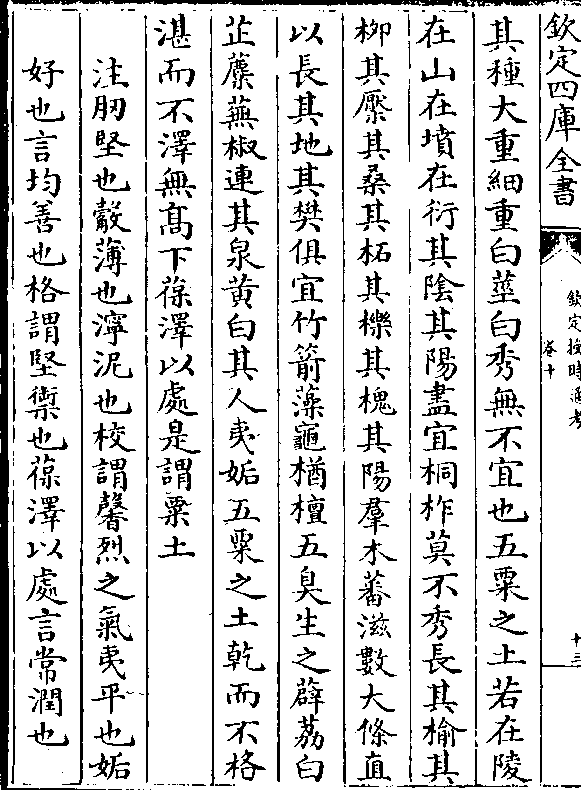 欽定四庫全書
欽定授時通考
卷十
十三
其種大重細重白莖白秀無不宜也五粟之土若在陵
在山在墳在衍其陰其陽盡宜桐柞莫不秀長其榆其
柳其檿其桑其柘其櫟其槐其陽羣木蕃滋數大條直
以長其地其樊俱宜竹箭藻龜楢檀五臭生之薜荔白
芷蘪蕪椒連其泉黃白其人夷姤五粟之土乾而不格
湛而不澤無髙下葆澤以處是謂粟土
注肕堅也觳薄也濘泥也校謂馨烈之氣夷平也姤
好也言均善也格謂堅禦也葆澤以處言常潤也